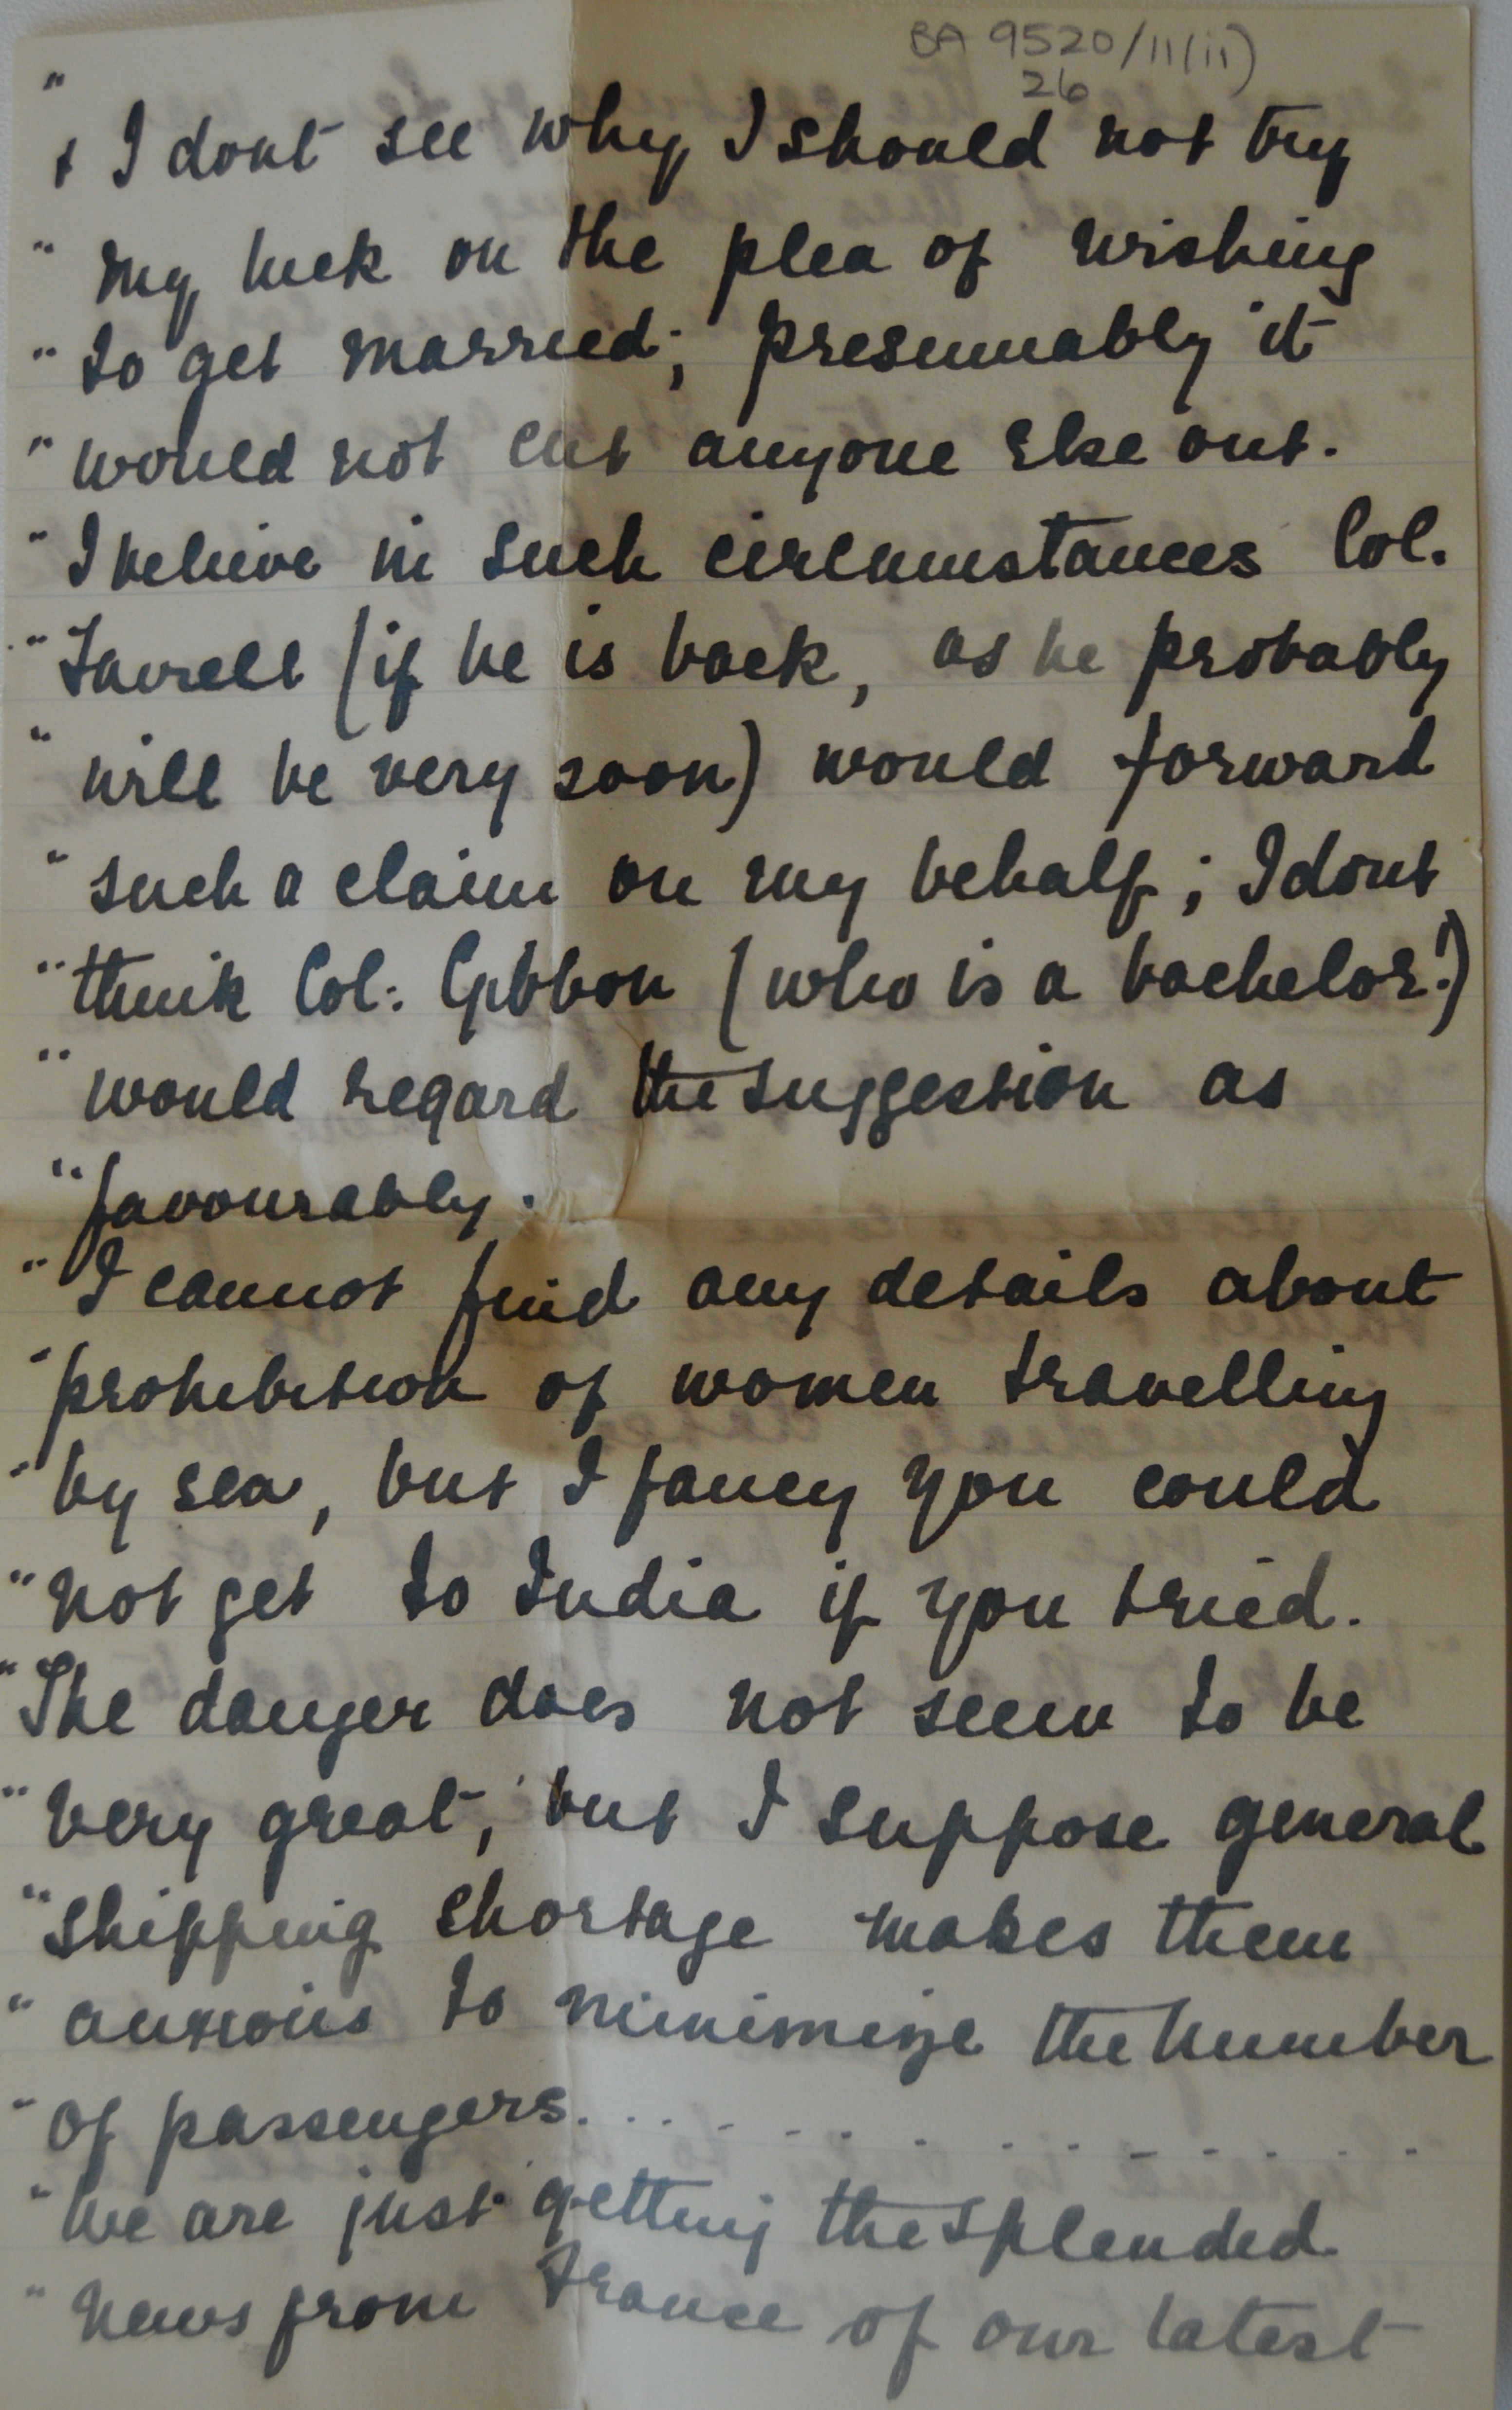 BA 9520/11(ii)
26
"
+ I dont see why I should not try
" my luck on the plea of wishing
" to get married; presumably it
" would not cut anyone else out.
" I believe in such circumstances Col.
" Farrell (if he is back, as he probably
" will be very soon) would forward
" such a claim on my behalf; I dont
" think Col: Gibbon (who is a bachelor!)
" would regard the suggestion as
" favourably.
" I cannot find any details about
" prohibition of women travelling
" by sea, but I fancy you could
" not get to India if you tried.
" The danger does not seem to be
" very great, but I suppose general
" shipping shortage makes them
" anxious to minimize the number
" of passengers. . . . . . . . . . . . . .
" We are just getting the splended
" news from France of our latest